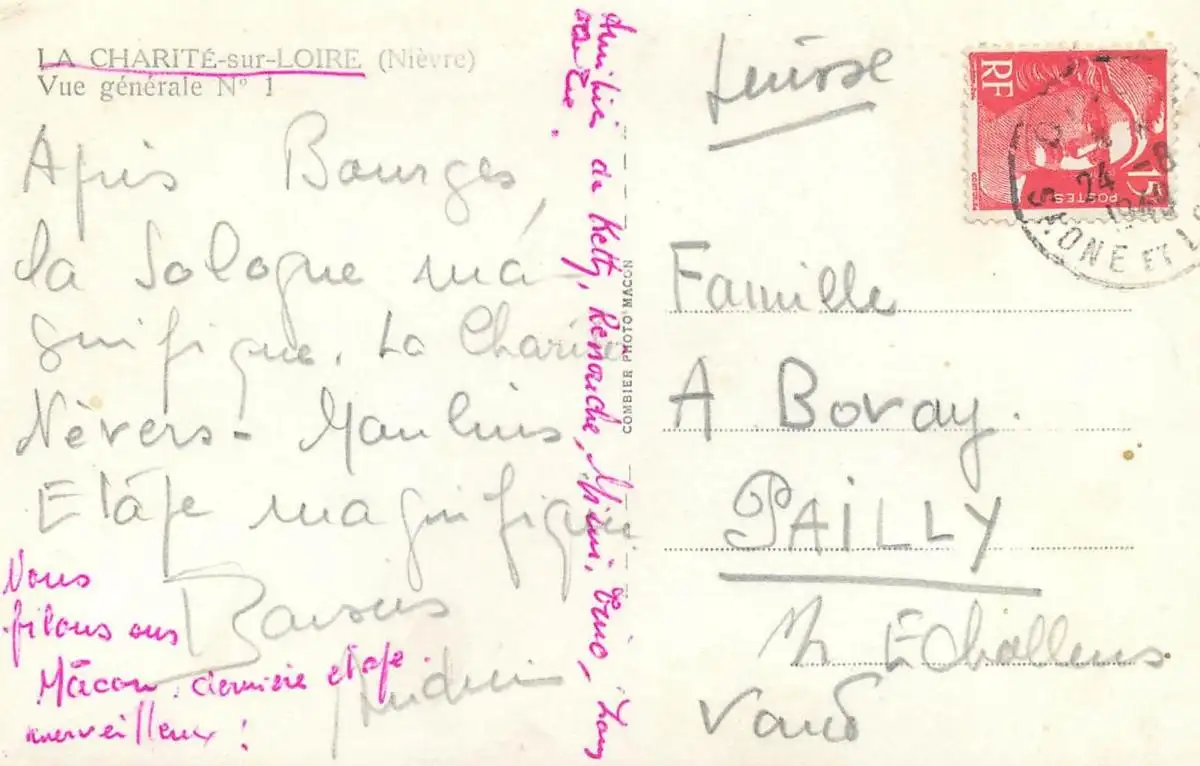 LA CHARITÉ-sur-LOIRE (Nièvre)
Vue générale N° 1
Après Bourges,
la Sologne ma-
gnifique, La Charité
Nèvers - Moulins
Etape magnifique
Baisers
Nous
filons sur
Mâcon, dernière etape
merveilleux!
Amitiés de Ketty, Renouche, Mimi,
COMBIER PHOTO MACON
Suisse
RF
POSTES
15F
24 -8
SAONE ET L
Famille
A Bovay.
PAILLY
s/ Echallens
Vaud